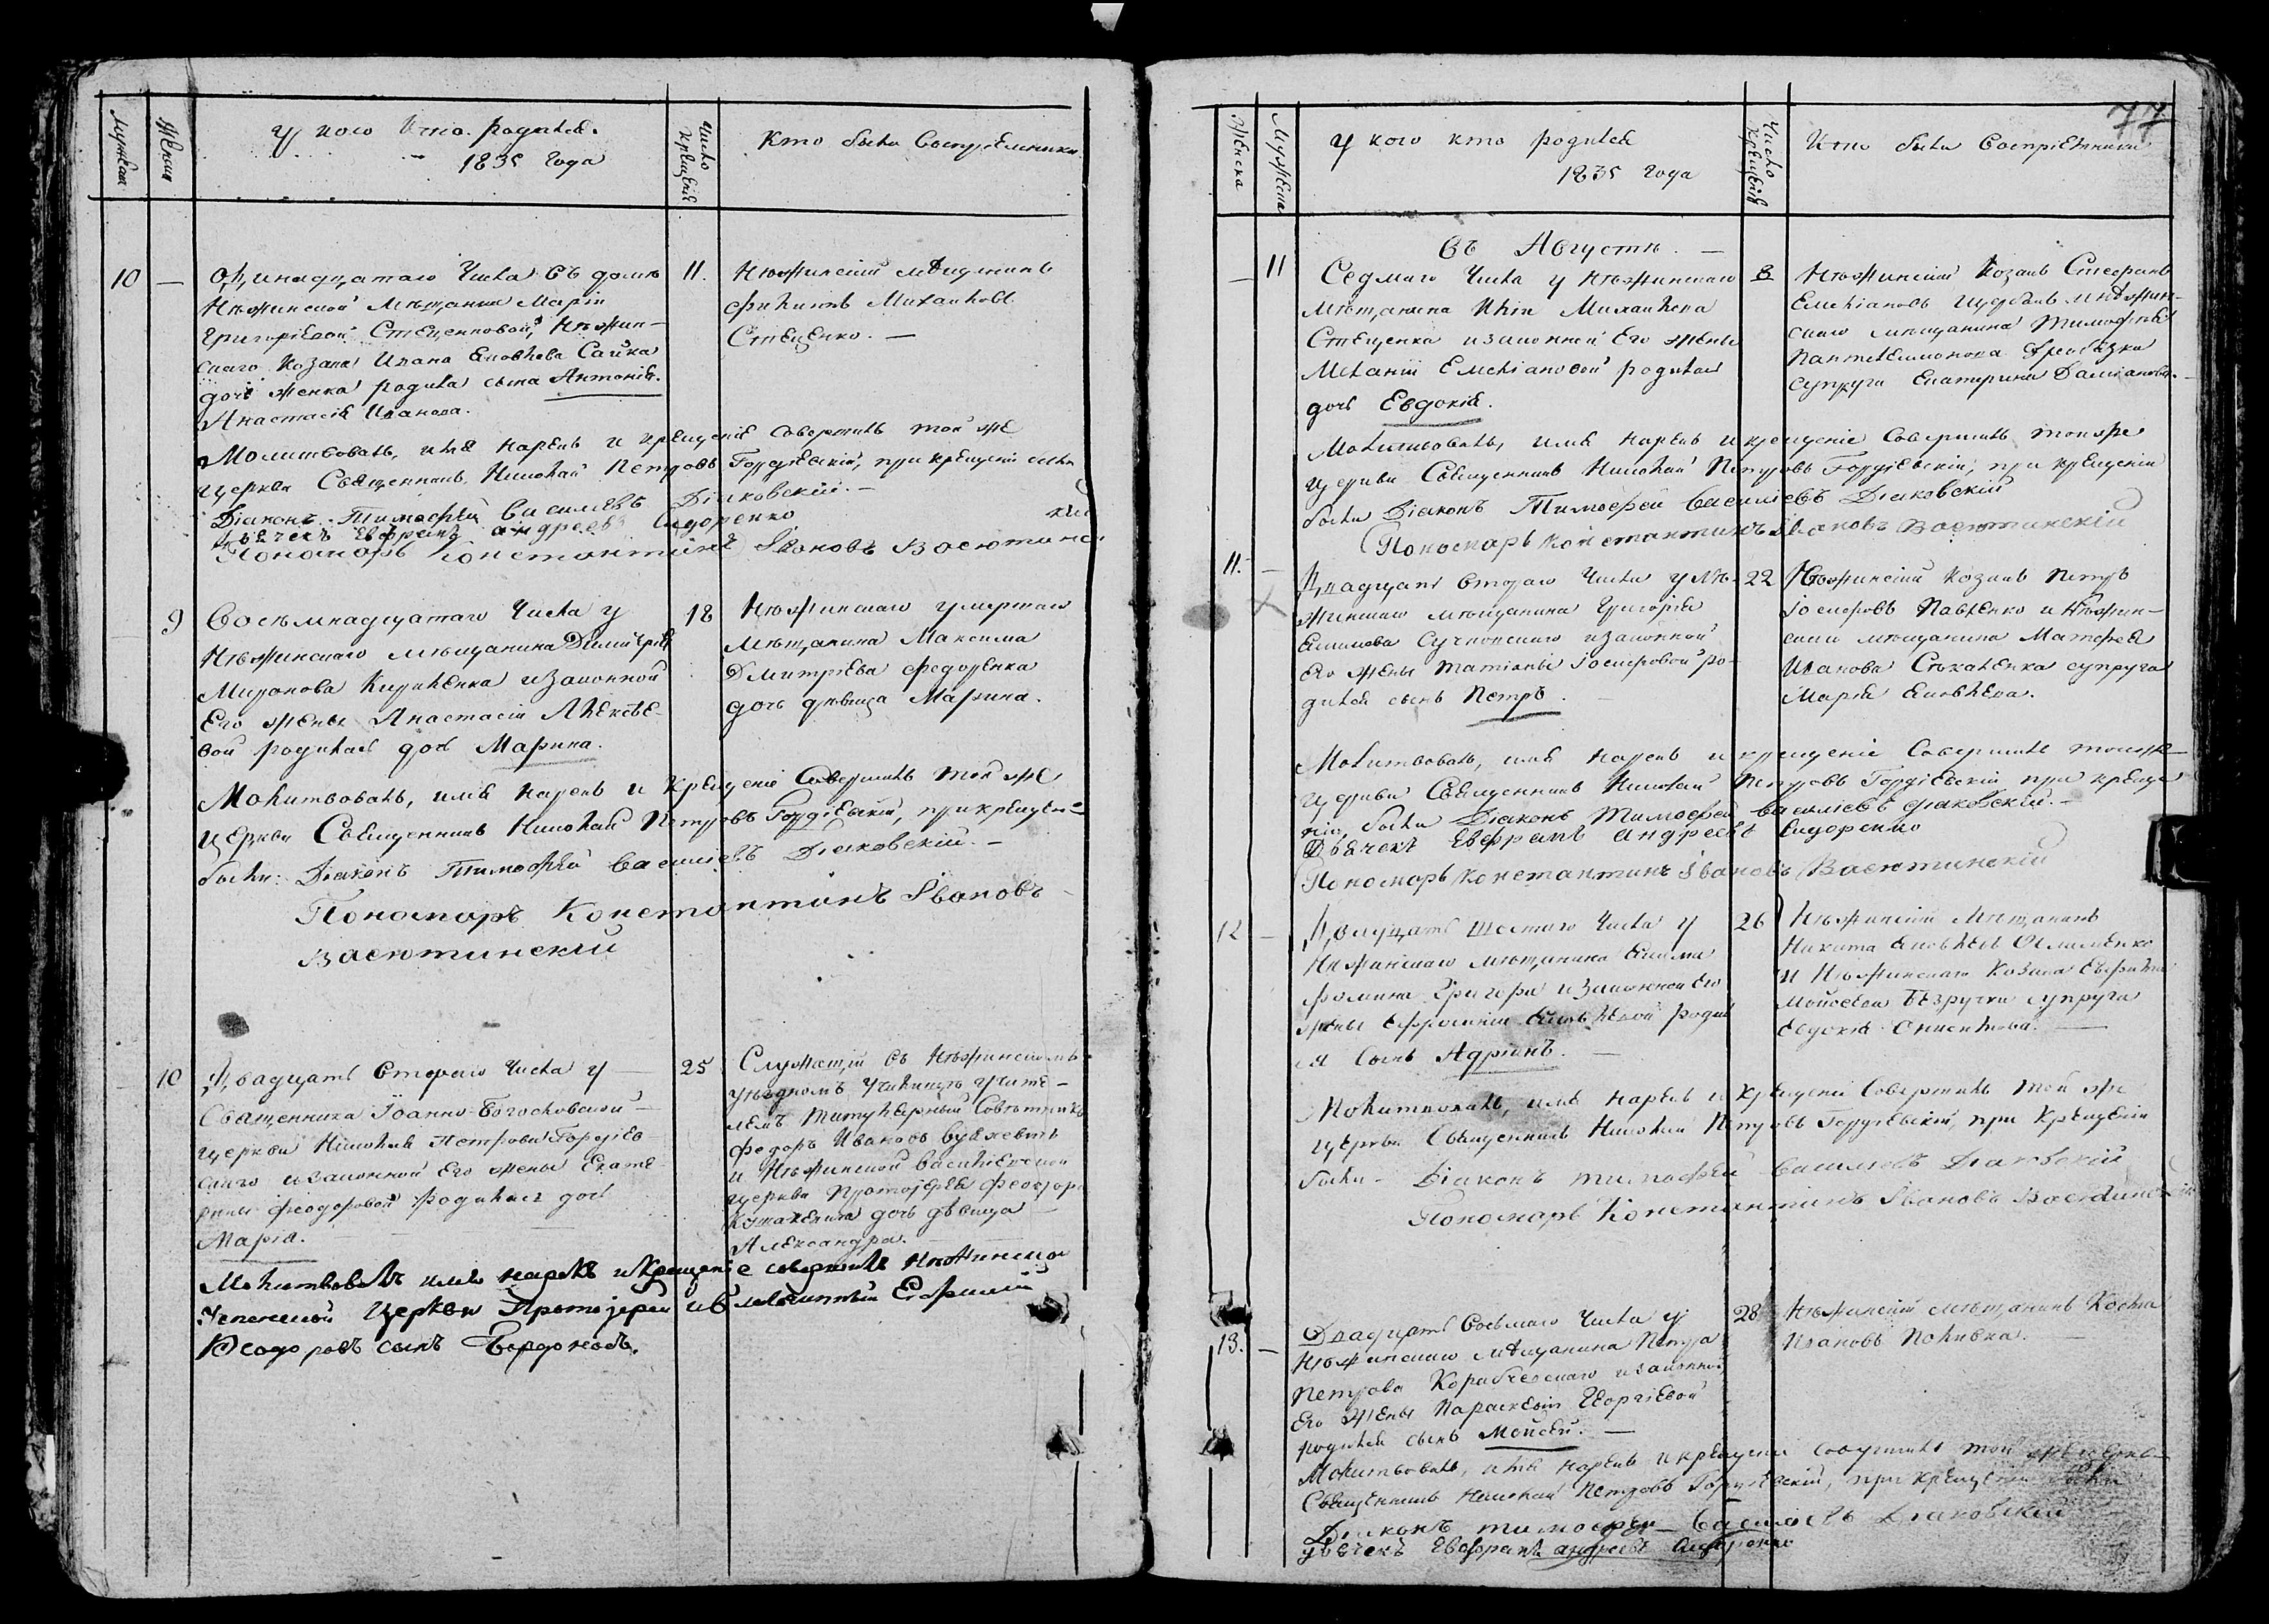 Мужеска
Женска
У кого кто родился
1835 года
Число крещенія
Кто были Воспріемники
10 — Одинадцатаго Числа въ домѣ
Нѣжинской мѣщанки Маріи
Григоріевой Стеценковой, Нѣжин-
скаго козака Ивана Яковлева Сайка
дочь женка родила сына Антонія.
Анастасія Иванова.
11.
Нѣжинскій мѣщанинъ
Филиппъ Михайловъ
Стеценко. —
Молитвовалъ, имя нарекъ и крещеніе совершилъ той же
церкви Священникъ Николай Петровъ Гордіевскій, при крещеніи были
Діаконъ Тимофей Василіевъ Діаковскій. —
Дьячекъ Евфремъ Андреевъ Сидоренко
Пономарь Константинъ Ивановъ Васютинскій
9
Восемнадцатаго Числа у
Нѣжинскаго мѣщанина Димитрія
Миронова Кириленка и законной
Его жены Анастасіи Алексѣе-
вой родилась дочь Марина.
18
Нѣжинскаго умершаго
мѣщанина Максима
Дмитріева Федоренка
дочь дѣвица Марина.
Молитвовалъ, имя нарекъ и крещеніе Совершилъ той же
Церкви Священникъ Николай Петровъ Гордіевскій, при крещеніи
были: Діаконъ Тимофей Василіевъ Діаковскій. —
Пономарь Константинъ Ивановъ
Васютинскій
10
Двадцать Втораго Числа у
Священника Іоанно-Богословской
церкви Николая Петрова Гордіев-
скаго и законной Его жены Екате-
рины Феодоровой родилась дочь
Марія.
25
Служащій въ Нѣжинскомъ
уѣздномъ Училищѣ учите-
лемъ титулярный Совѣтникъ
Федоръ Ивановъ
и Нѣжинской Васильевской
церкви Протоіерея Феодора
дочь дѣвица
Александра.
Молитвовалъ имя нарекъ и крещеніе совершилъ Нѣжинской
Успенской Церкви Протоіерей и Евфимій
Феодоровъ сынъ
77
Женска
Мужеска
У кого кто родился
1835 года
Число Крещенія
Кто были Воспріемники
Въ Августѣ. —
— 11
Седмаго Числа у Нѣжинскаго
мѣщанина Иліи Михайлова
Стеценка и законной Его жены
Меланіи Емеліановой родилась
дочь Евдокія.
8
Нѣжинскій Козакъ Стефанъ
Емеліановъ и Нѣжин-
скаго мѣщанина Тимофея
Пантелеимонова
супруга Екатерина Даміанова. —
Молитвовалъ, имя нарекъ и крещеніе Совершилъ той же
церкви Священникъ Николай Петровъ Гордіевскій, при крещеніи
были Діаконъ Тимофей Василіевъ Діаковскій
Пономарь Константинъ Ивановъ Васютинскій
11. —
Двадцать Втораго Числа у Нѣ-
жинскаго мѣщанина Григорія
его жены Татіаны Іосифовой ро-
дился сынъ Петръ. —
22
Нѣжинскій Козакъ Петръ
Іосифовъ Павленко и Нѣжин-
скаго мѣщанина Матфея
Иванова супруга
Марія Яковлева.
Молитвовалъ, имя нарекъ и крещеніе Совершилъ той же
церкви Священникъ Николай Петровъ Гордіевскій при креще-
ніи были Діаконъ Тимофей Василіевъ Діаковскій. —
Дьячекъ Евфремъ Андреевъ Сидоренко
Пономарь Константинъ Ивановъ Васютинскій
12 —
Двадцать Шестаго Числа у
Нѣжинскаго мѣщанина Якима
Фомина и законной Его
жены Ефросиніи Яковлевой родил-
ся сынъ Адріанъ. —
26
Нѣжинскій Мѣщанинъ
Никита Яковлевъ
и Нѣжинскаго Козака
Мойсеева Безручки супруга
Евдокія. —
Молитвовалъ, имя нарекъ и крещеніе Совершилъ той же
церкви Священникъ Николай Петровъ Гордіевскій, при Крещеніи
были — Діаконъ Тимофей Василіевъ Діаковскій
Пономарь Константинъ Ивановъ Васютинскій
13. —
Двадцать Восьмаго Числа у
Нѣжинскаго мѣщанина Петра
Петрова и законной
Его жены Параскевіи Георгіевой
родился сынъ Мойсей. —
28
Нѣжинскій мѣщанинъ Косма
Ивановъ
Молитвовалъ, имя нарекъ и крещеніе совершилъ той же церкви
Священникъ Николай Петровъ Гордіевскій, при крещеніи были
Діаконъ Тимофей Василіевъ Діаковскій
Дьячекъ Евфремъ Андреевъ Сидоренко